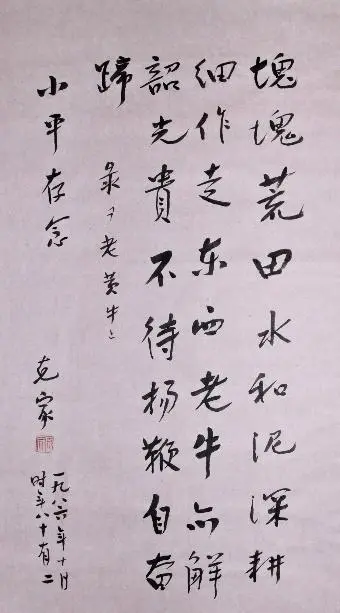 塊塊荒田水和泥深耕
细作走东西老牛亦解
韶光貴不待扬鞭自奋
蹄
录《老黄牛》
小平存念
克家
一九八六年十月
时年八十有二